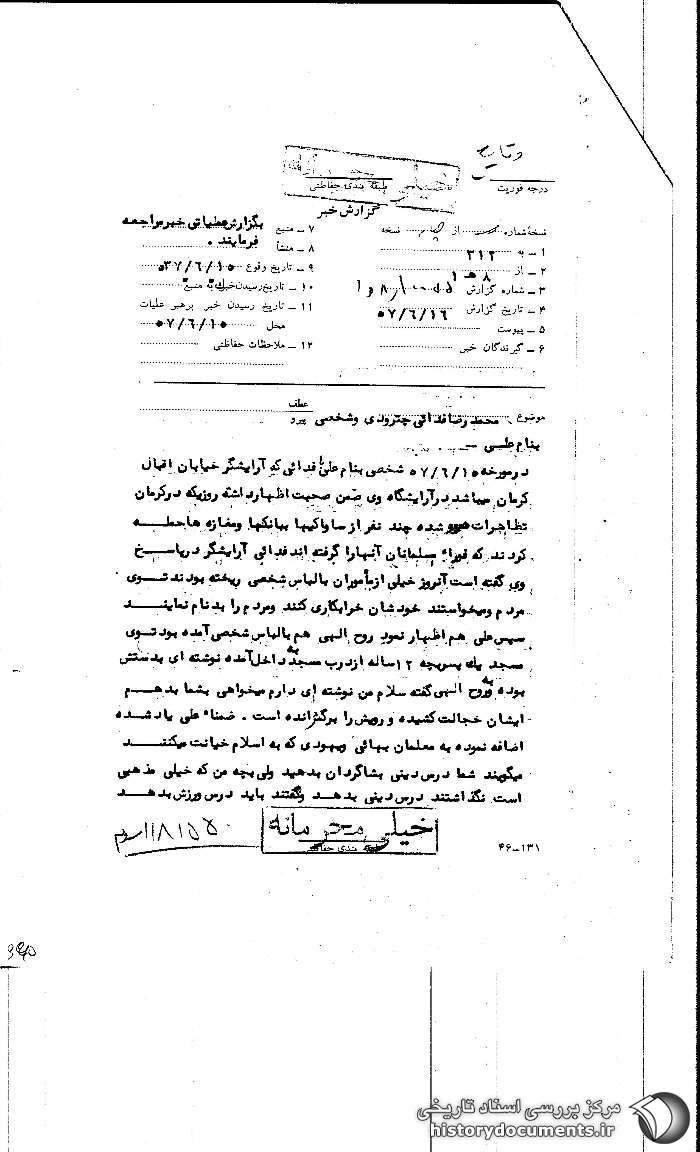 خیلی محرمانه
طبقه بندی حفاظتی
درجه فوریت
گزارش خبر
نسخه شماره از نسخه
۱ ـ به ۳۱۲
۲ ـ از ۸ هـ ۱
۳ ـ شماره گزارش
۴ ـ تاریخ گزارش ۵۷/۶/۱۶
۵ ـ پیوست
۶ ـ گیرندگان خبر
۷ ـ منبع بگزارش عملیاتی خبر مراجعه
۸ ـ منشأ فرمایند .
۹ ـ تاریخ وقوع ۵۳۷/۶/۱۵
۱۰ ـ تاریخ رسیدن خبر به منبع
۱۱ ـ تاریخ رسیدن خبر برهبر عملیات
محل ۵۷/۶/۱۵
۱۲ ـ ملاحظات حفاظتی
عطف
موضوع : محمدرضا فدائی چترودی و شخصی پیرو
بنام علی ـ
در مورخه ۵۷/۶/۱۵ شخصی بنام علی فدائی که آرایشگر خیابان اقبال
کرمان میباشد در آرایشگاه وی ضمن صحبت اظهار داشته روزیکه در کرمان
تظاهرات شده چند نفر از ساواکیها ببانکها و مغازه ها حمله
کردند که فوراً مسلمانان آنها را گرفته اند فدائی آرایشگر در پاسخ
وی گفته است آنروز خیلی از مأموران با لباس شخصی ریخته بودند توی
مردم و میخواستند خودشان خرابکاری کنند و مردم را بدنام نمایند
سپس علی هم اظهار نمود روح الهی هم با لباس شخصی آمده بود توی
مسجد یك پسربچه ۱۲ ساله از درب مسجد به داخل آمده نوشته ای بدستش
بوده و به روح الهی گفته سلام من نوشته ای دارم میخواهی بشما بدهم
ایشان خجالت کشیده و رویش را برگشزانده است . ضمناً علی یاد شده
اضافه نموده به معلمان بهائی و یهودی که به اسلام خیانت میکنند
میگویند شما درس دینی بشاگردان بدهید ولی بچه من که خیلی مذهبی
است نگذاشتند درس دینی بدهد و گفتند باید درس ورزش بدهد
خیلی محرمانه
طبقه بندی حفاظتی
۴۶-۱۳۱
مرکز بررسی اسناد تاریخی
historydocuments.ir